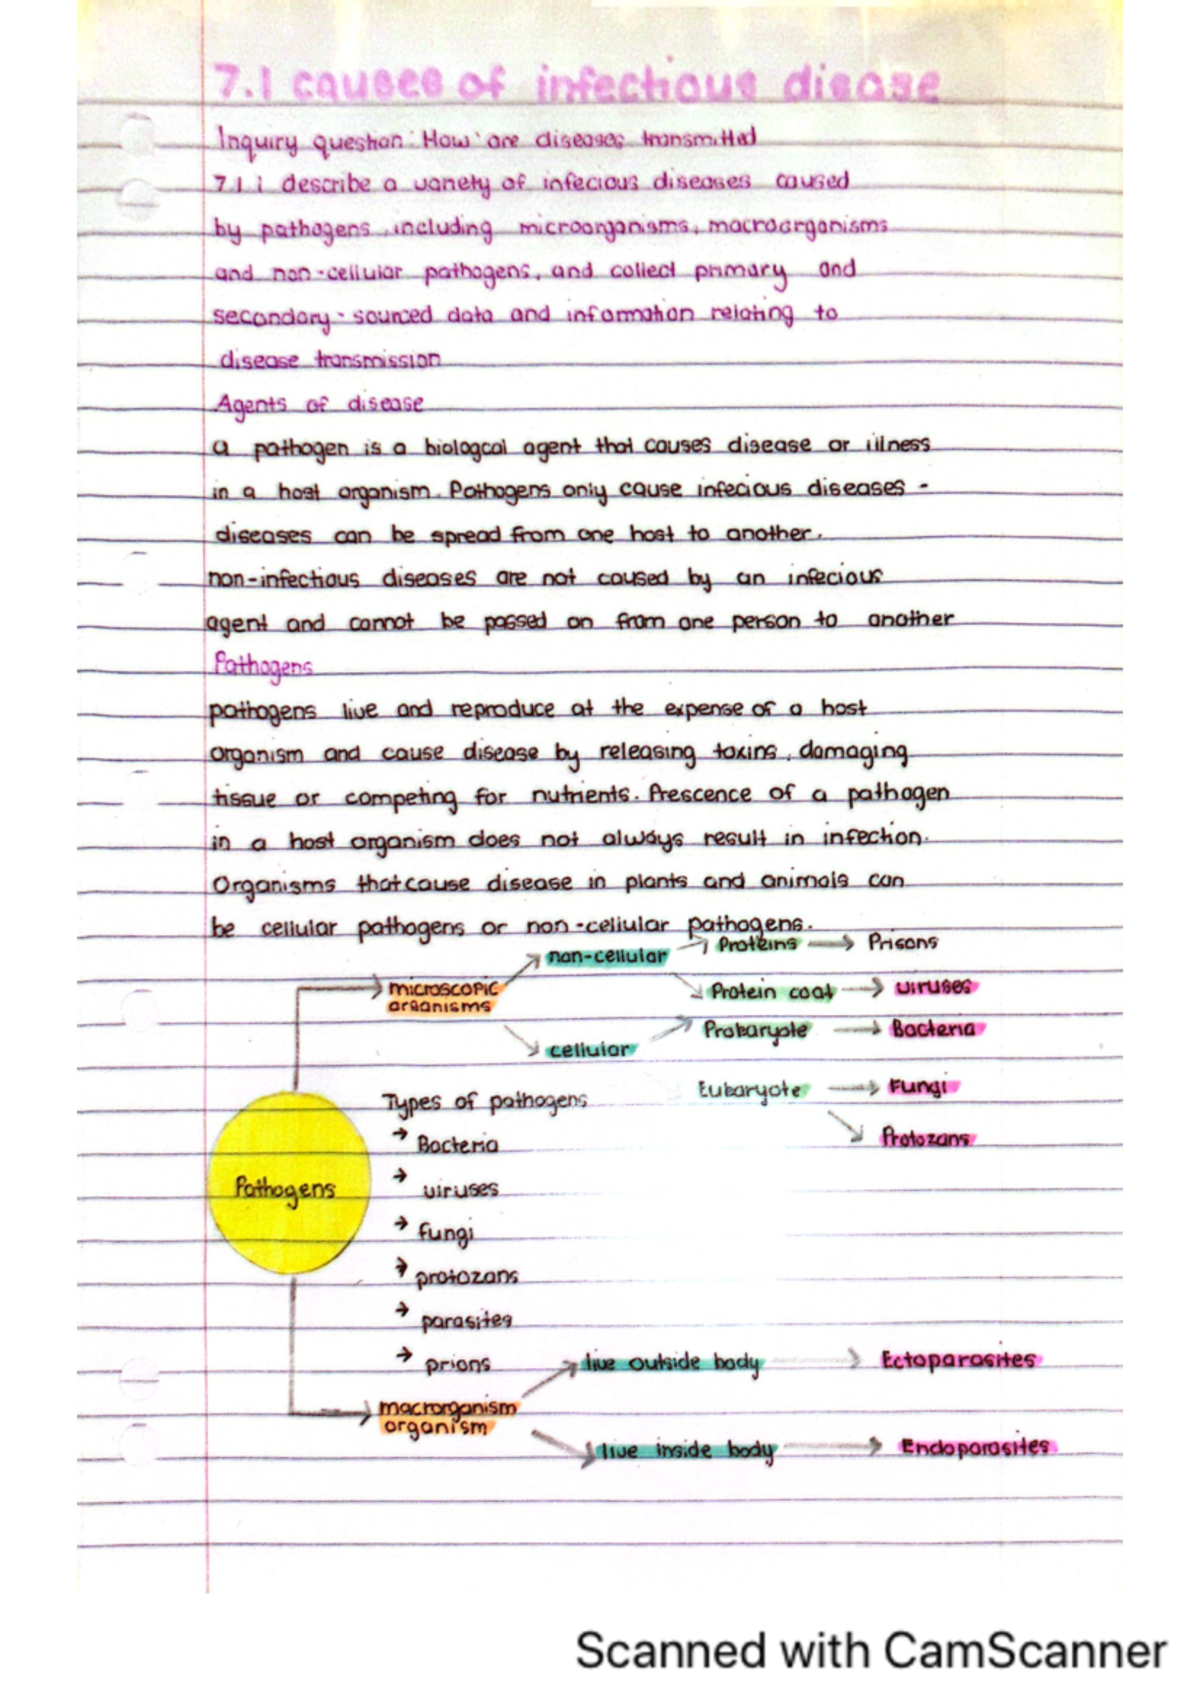 7.1 causes of infectious disease
Inquiry question: How are diseases transmitted
7.1.1 describe a variety of infecious diseases caused
by pathogens, including microorganisms, macroorganisms
and non-cellular pathogens, and collect primary and
secondary-sourced data and information relating to
disease transmission
Agents of disease
a pathogen is a biologcal agent that causes disease or illness
in a host organism. Pathogens only cause infecious diseases -
diseases can be spread from one host to another.
non-infectious diseases are not caused by an infecious
agent and cannot be passed on from one person to another
Pathogens
pathogens live and reproduce at the expense of a host
organism and cause disease by releasing toxins, damaging
tissue or competing for nutrients. Prescence of a pathogen
in a host organism does not always result in infection.
Organisms that cause disease in plants and animals can
be cellular pathogens or non-cellular pathogens.
non-cellular → Proteins → Prisons
microscopic
organisms
Protein coat → viruses
Prokaryote → Bacteria
cellular
Eukaryote → Fungi
Protozans
Pathogens
Types of pathogens
→ Bacteria
→ viruses
→ fungi
→ protozans
→ parasites
→ prions
live outside body → Ectoparasites
macrorganism
organism
live inside body → Endoparasites
Scanned with CamScanner